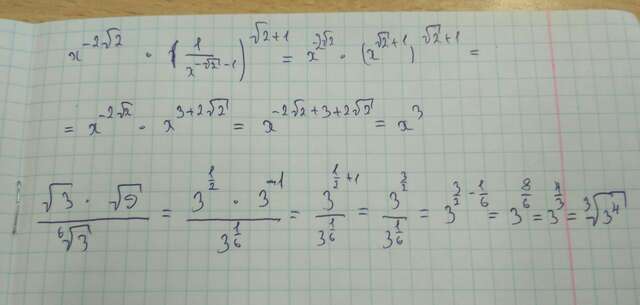 x^{-2√2} · (1/x^{-√2-1})^{√2+1} = x^{-2√2} · (x^{√2+1})^{√2+1} =
= x^{-2√2} · x^{3+2√2} = x^{-2√2+3+2√2} = x^3
(√3 · √9)/⁶√3 = (3^{1/2} · 3^{-1})/3^{1/6} = 3^{1/2+1}/3^{1/6} = 3^{3/2}/3^{1/6} = 3^{3/2-1/6} = 3^{8/6} = 3^{4/3} = ³√(3^4)